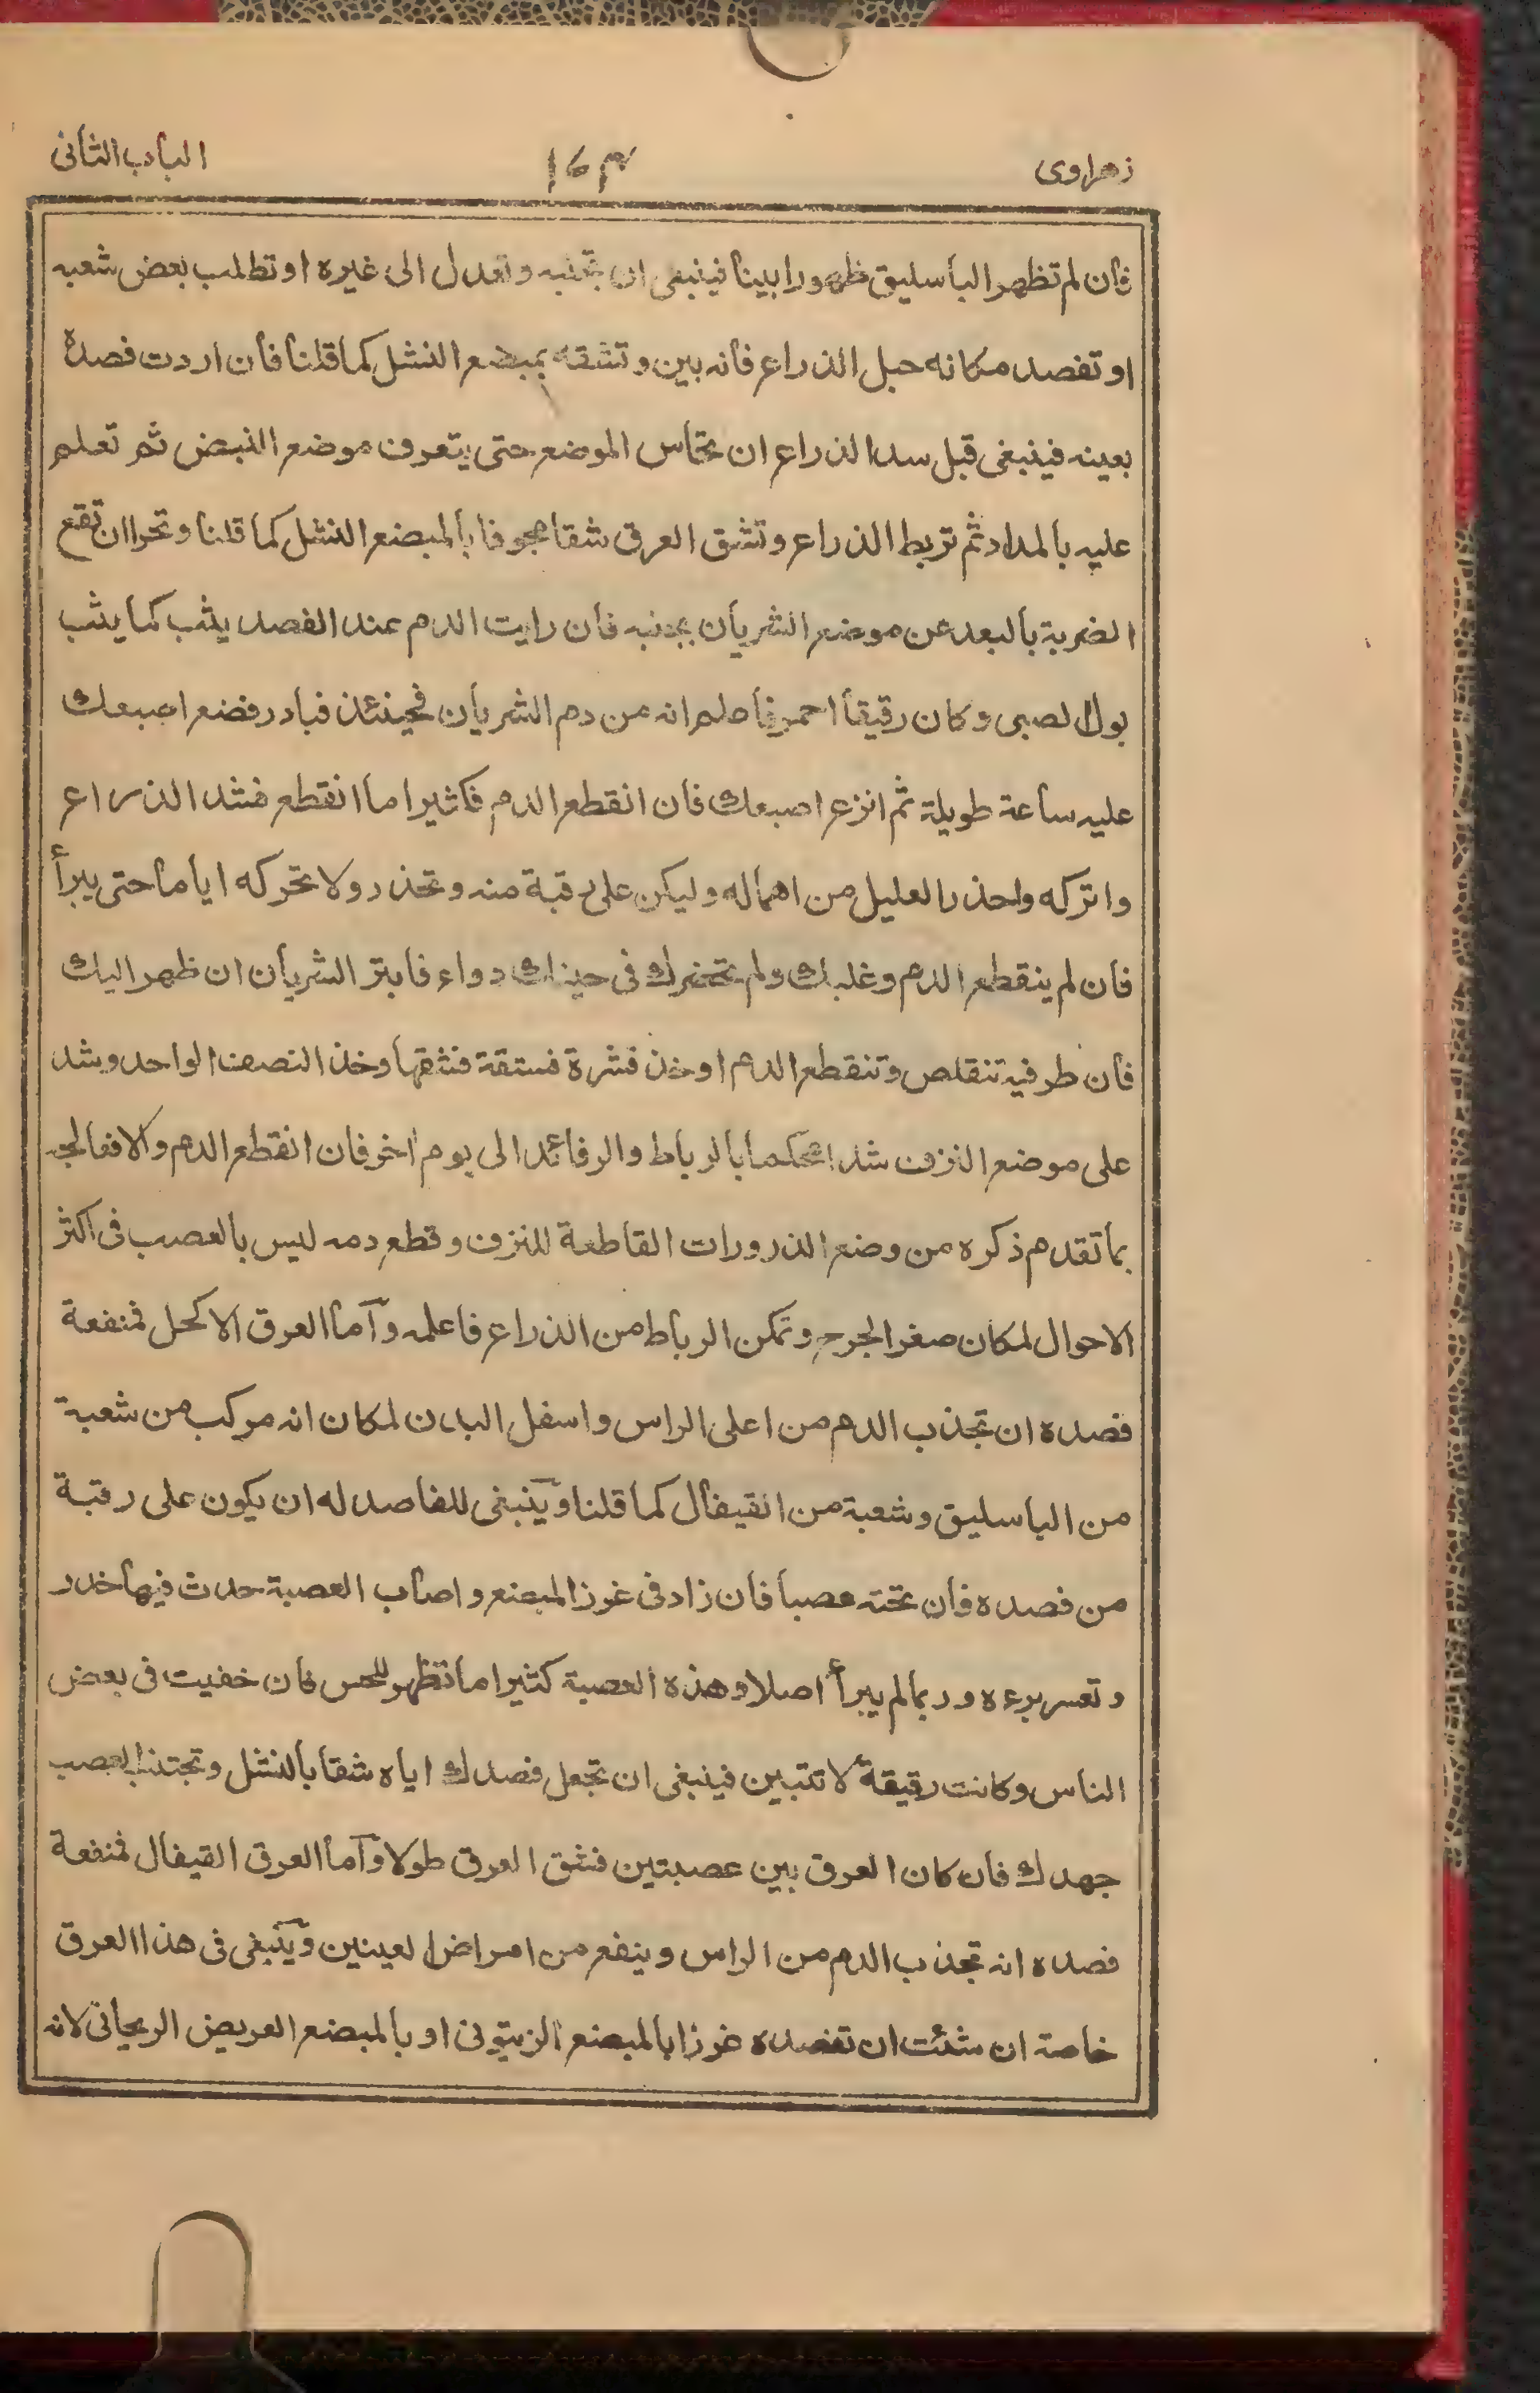 زهراوى
١٦٤
الباب الثانى
فان لم تظهر الباسليق ظهورا بينا فينبغى ان تجتنبه وتعدل الى غيره او تطلب بعض شعبه
او تفصد مكانه حبل الذراع فانه بين وتشقه بمبضع النشل كما قلنا فان اردت فصدة
بعينه فينبغى قبل سد الذراع ان تحاس الموضع حتى يتعرف موضع النبض ثم تعلم
عليه بالمداد ثم تربط الذراع وتشق العرق شقا مجوفا بالمبضع النشل كما قلنا وتحرا ان تقع
الضربة بالبعد عن موضع الشريان بجنبه فان رايت الدم عند الفصد يثب كما يثب
بول الصبى وكان رقيقا احمر فاعلم انه من دم الشريان فحينئذ فبادر فضع اصبعك
عليه ساعة طويلة ثم انزع اصبعك فان انقطع الدم فكثيرا ما انقطع فشد الذراع
واتركه واحذر العليل من اهماله وليكن على رقبة منه وتحذر ولا تحركه اياما حتى يبرأ
فان لم ينقطع الدم وغلبك ولم تحضرك فى حينك دواء فابتر الشريان ان ظهر اليك
فان طرفيه تنقلص وتنقطع الدم او خذ قشرة فستقة فشقها وخذ النصف الواحد وشد
على موضع النزف شدا محكما بالرباط والرفائد الى يوم اخر فان انقطع الدم والا فعالجه
بما تقدم ذكره من وضع الذرورات القاطعة للنزف وقطع دمه ليس بالعصب فى اكثر
الاحوال لمكان صغر الجرح وتمكن الرباط من الذراع فاعلمه وآما العرق الاكحل فمنفعة
فصده ان تجذب الدم من اعلى الراس واسفل البدن لمكان انه مركب من شعبة
من الباسليق وشعبة من القيفال كما قلنا وينبغى للفاصد له ان يكون على رقبة
من فصده فان تحته عصبا فان زاد فى غرز المبضع واصاب العصبة حدث فيها خدر
وتعسر برءه وربما لم يبرأ اصلا وهذه العصبة كثيرا ما تظهر للحس فان خفيت فى بعض
الناس وكانت رقيقة لا تتبين فينبغى ان تجعل فصدك اياه شقا بالنشل وتجتنب العصب
جهدك فان كان العرق بين عصبتين فشق العرق طولا وآما العرق القيفال فمنفعة
فصده انه تجذب الدم من الراس وينفع من امراض العينين وينبغى فى هذا العرق
خاصة ان شئت ان تفصده غرزا بالمبضع الزيتونى او بالمبضع العريض الريحانى لانه